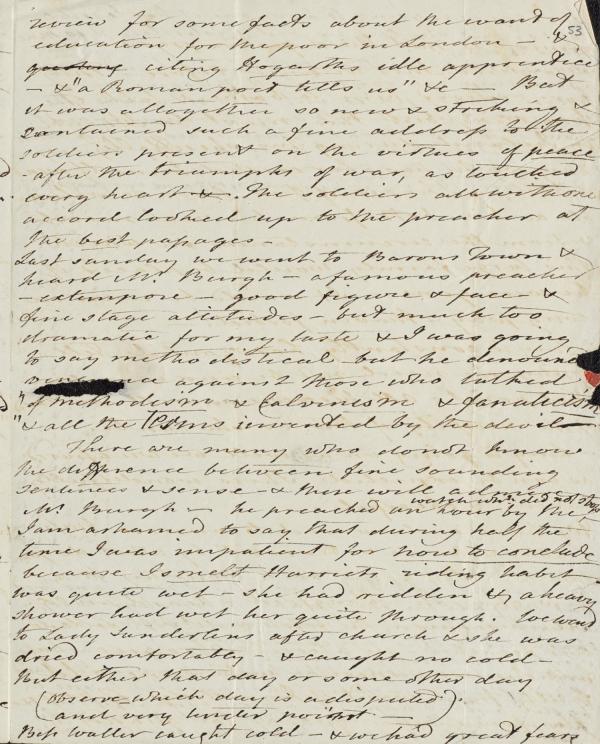 review for some facts about the want of
53
education for the poor in London – &
citing Hogarths idle apprentice
– & "a Roman poet tells us" &c – But
it was altogether so new & striking &
contained such a fine address to the
soldiers present on the virtues of peace
after the triumphs of war, as touched
every heart &. The soldiers all with one
accord looked up to the preacher at
the best passages –
Last sunday we went to Barons Town &
heard Mr. Burgh – a famous preacher
– extempore – good figure & face – &
fine stage attitudes – but much too
dramatic for my taste & I was going
to say methodistical but he denound
against those who talked
"of methodism & Calvinism & fanaticism
"& all the isms invented by the devil –
There are many who do not know
the difference between fine sounding
sentences & sense – & these will
Mr. Burgh – he preached an hour by the
watch which did not stop
I am ashamed to say that during half the
time I was impatient for now to conclude
because I smelt Harriets riding habit
was quite wet – she had ridden & a heavy
shower had wet her quite through. We went
to Lady Sunderlins after church & she was
dried comfortably – & caught no cold –
But either that day or some other day
(Observe which day is a disputed)
(and very under point –)
Bess Waller caught cold – & we had great fears